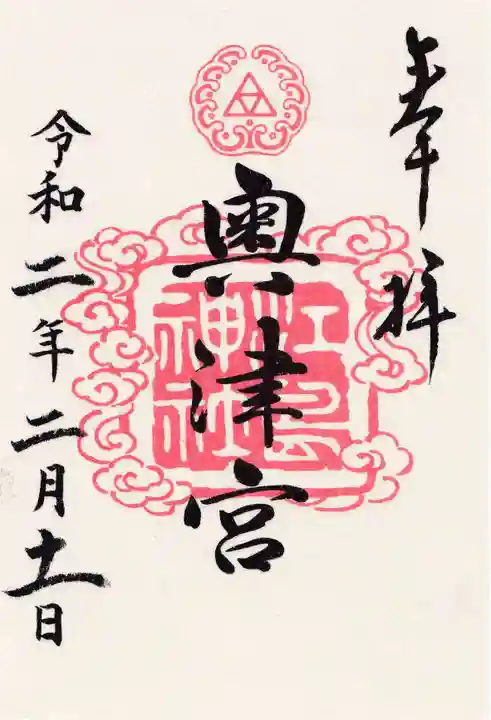 奉拝
奥津宮
江島
神社
令和二年二月十一日